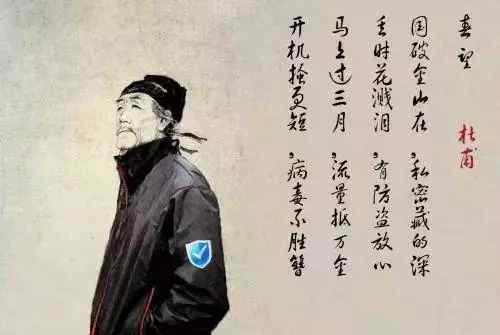 春望
杜甫
国破金山在,私密藏的深
丢时花溅泪,有防盗放心
马上过三月,流量抵万金
开机搔更短,病毒不胜簪